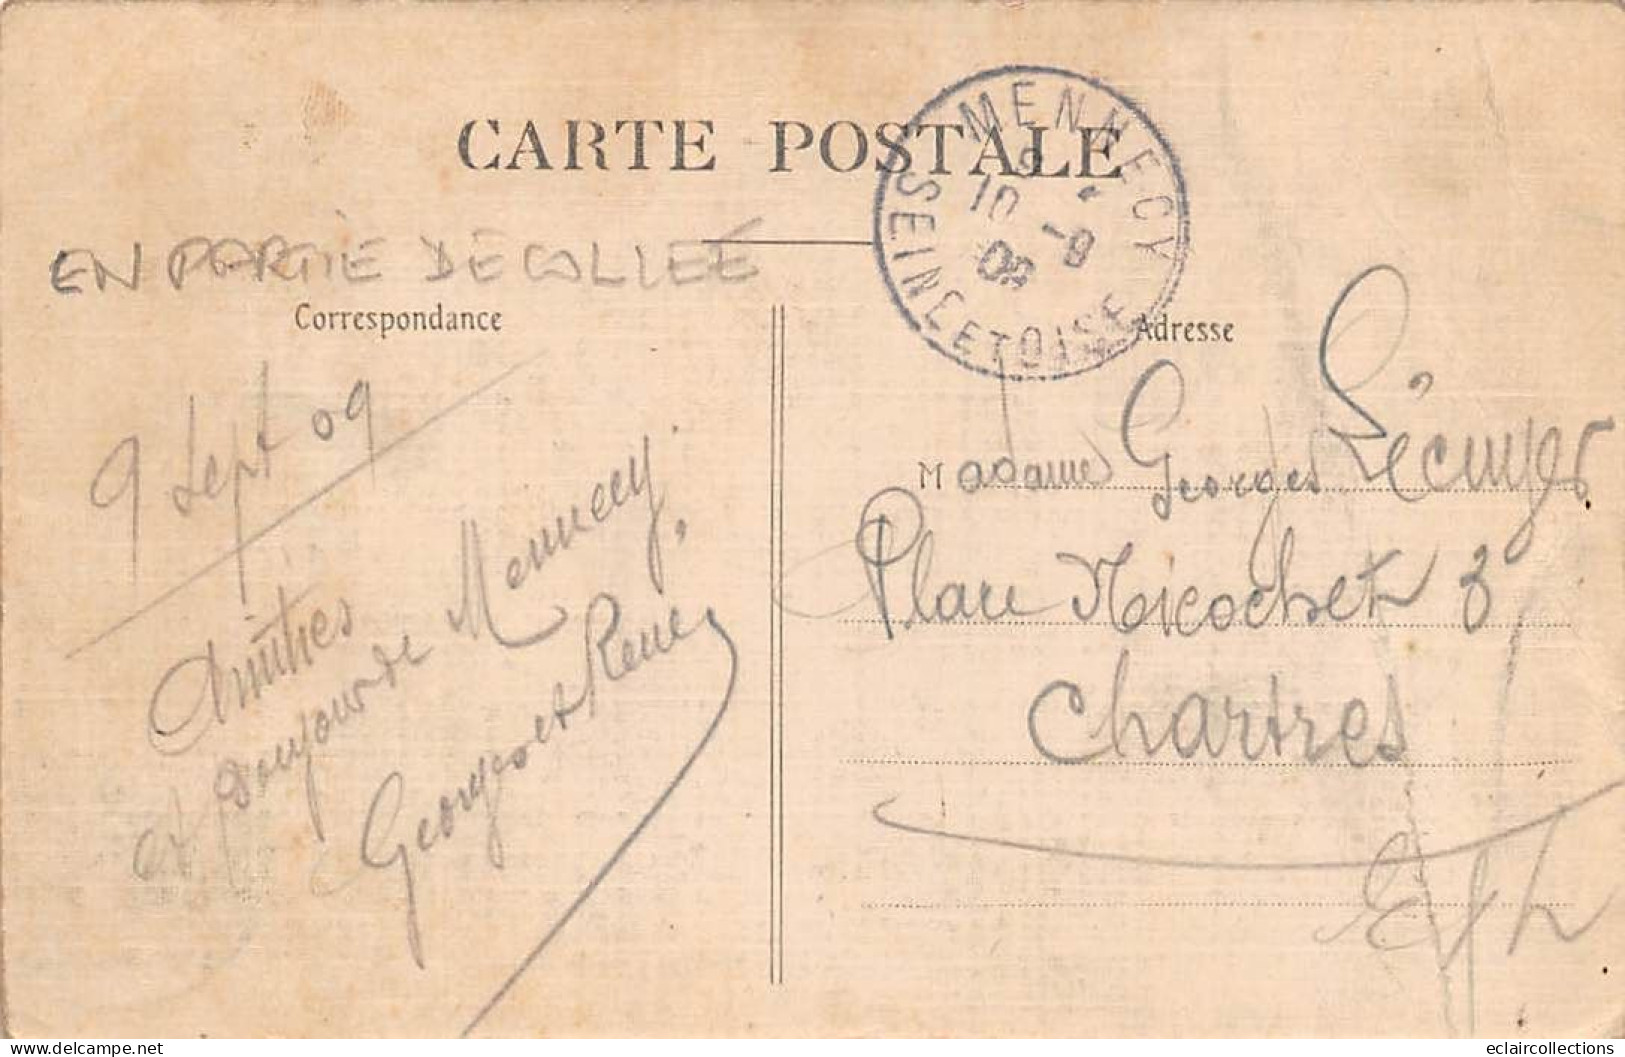 CARTE POSTALE
MENNECY
SEINE ET OISE
10 -9
09
EN PARTIE DECOLLEÉ
Correspondance
Adresse
9 Sept 09
Amitiés
et bonjour de Mennecy.
Georges et René
Madame Georges Lécuyer
Place Nicochet 3
Chartres
E & L
www.delcampe.net
eclaircollections